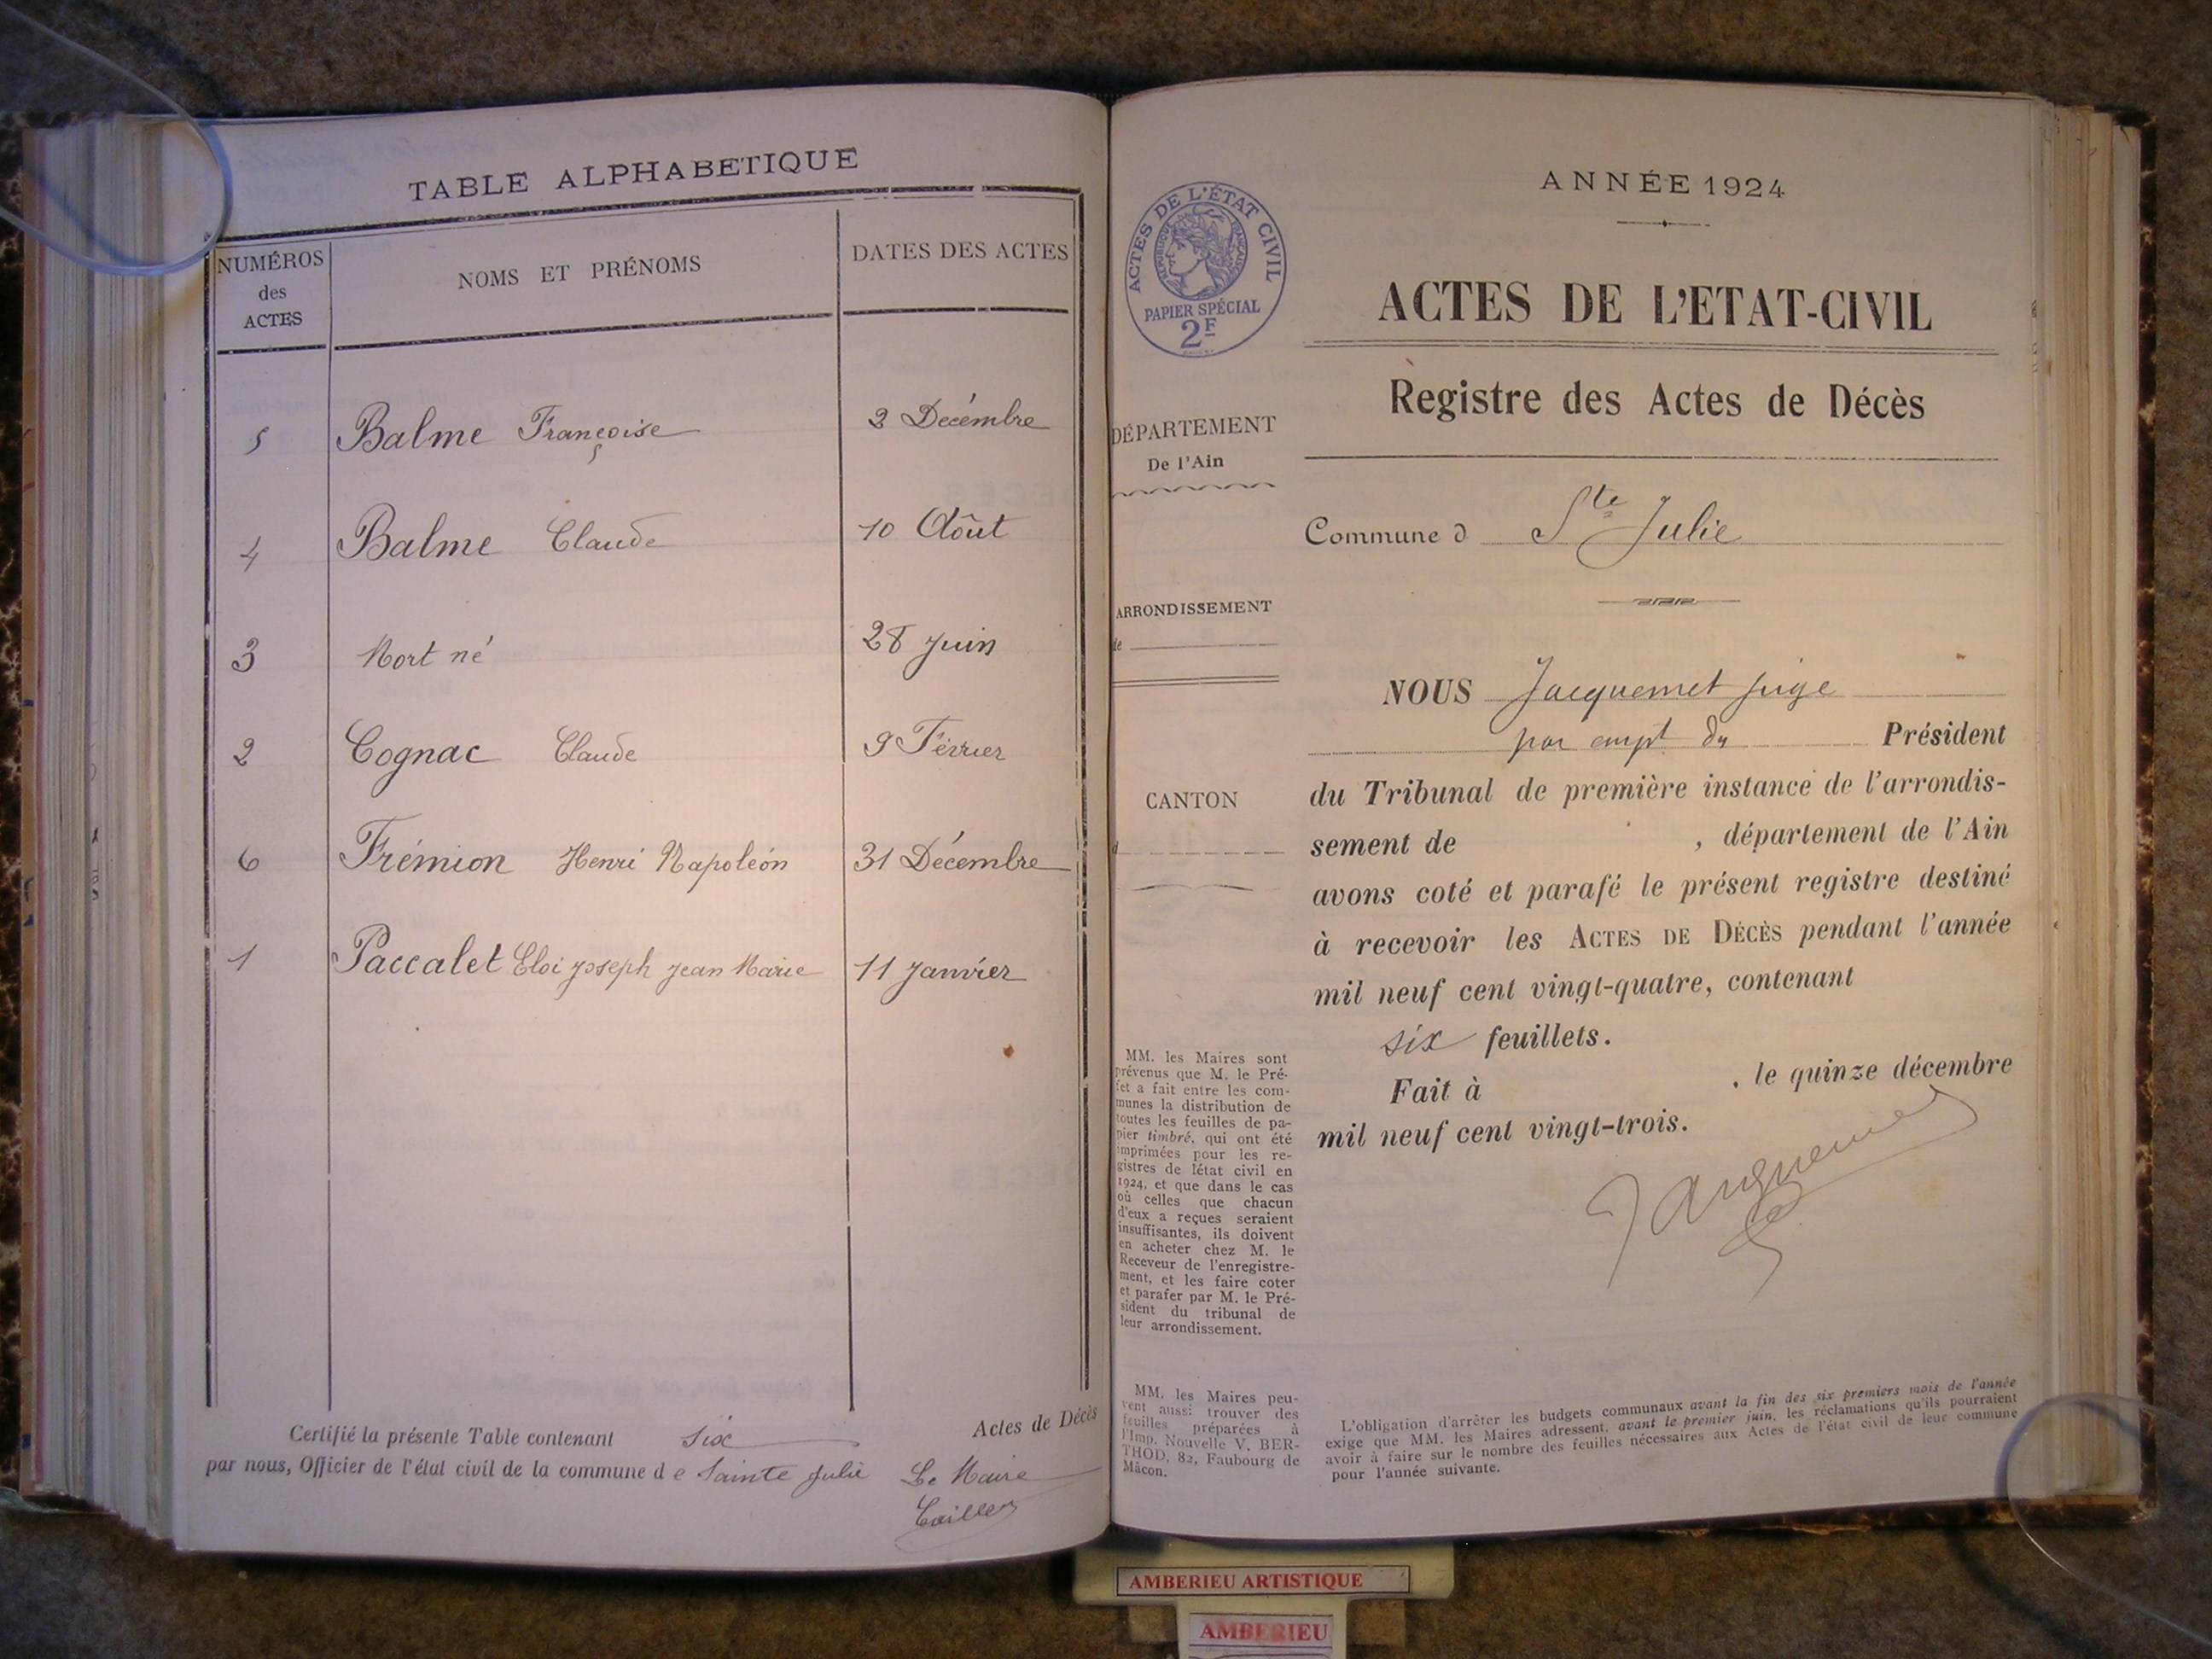 TABLE ALPHABETIQUE
NUMÉROS
des
ACTES
NOMS ET PRÉNOMS
DATES DES ACTES
5 Balme Françoise 3 Décembre
4 Balme Claude 10 Aôut
3 Mort né 28 Juin
2 Cognac Claude 9 Février
6 Frémion Henri Napoléon 31 Décembre
1 Paccalet Eloi Joseph Jean Marie 11 Janvier
Certifié la présente Table contenant six Actes de Décès
par nous, Officier de l'état civil de la commune d e Sainte Julie Le Maire
ACTES DE L'ÉTAT CIVIL
RÉPUBLIQUE FRANÇAISE
PAPIER SPÉCIAL
2F
DÉPARTEMENT
De l'Ain
ARRONDISSEMENT
de
CANTON
d
MM. les Maires sont
prévenus que M. le Pré-
fet a fait entre les com-
munes la distribution de
toutes les feuilles de pa-
pier timbré, qui ont été
imprimées pour les re-
gistres de létat civil en
1924, et que dans le cas
où celles que chacun
d'eux a reçues seraient
insuffisantes, ils doivent
en acheter chez M. le
Receveur de l'enregistre-
ment, et les faire coter
et parafer par M. le Pré-
sident du tribunal de
leur arrondissement.
MM. les Maires peu-
vent aussi trouver des
feuilles préparées à
l'Imp. Nouvelle V. BER-
THOD, 82, Faubourg de
Mâcon.
ANNÉE 1924
ACTES DE L'ETAT-CIVIL
Registre des Actes de Décès
Commune d Ste Julie
NOUS Jacquemet juge
par empt du Président
du Tribunal de première instance de l'arrondis-
sement de , département de l'Ain
avons coté et parafé le présent registre destiné
à recevoir les ACTES DE DÉCÈS pendant l'année
mil neuf cent vingt-quatre, contenant
six feuillets.
Fait à , le quinze décembre
mil neuf cent vingt-trois.
Jacquemet
L'obligation d'arrêter les budgets communaux avant la fin des six premiers mois de l'année
exige que MM. les Maires adressent, avant le premier juin, les réclamations qu'ils pourraient
avoir à faire sur le nombre des feuilles nécessaires aux Actes de l'état civil de leur commune
pour l'année suivante.
AMBERIEU ARTISTIQUE
AMBERIEU